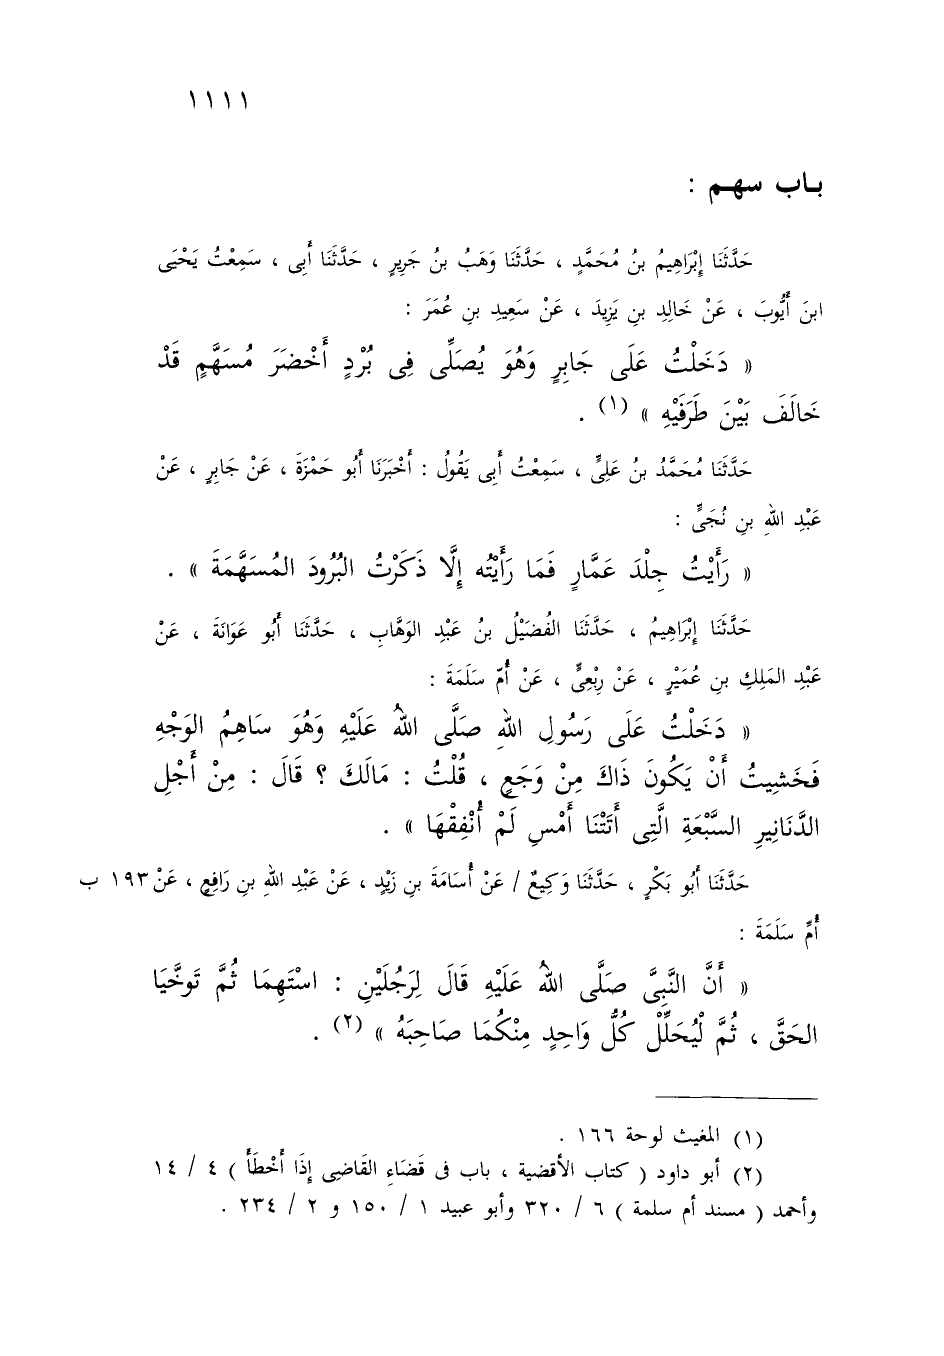 ١١١١
بـاب سهـم :
حَدَّثَنَا إِبْرَاهِيمُ بنُ مُحَمَّدٍ ، حَدَّثَنَا وَهَبُ بنُ جَرِيرٍ ، حَدَّثَنَا أَبِى ، سَمِعْتُ يَحْيَى
ابنَ أَيُّوبَ ، عَنْ خَالِدِ بنِ يَزِيدَ ، عَنْ سَعِيدِ بنِ عُمَرَ :
« دَخَلْتُ عَلَى جَابِرٍ وَهُوَ يُصَلِّى فِى بُرْدٍ أَخْضَرَ مُسَهَّمٍ قَدْ
خَالَفَ بَيْنَ طَرَفَيْهِ » (١) .
حَدَّثَنَا مُحَمَّدُ بنُ عَلِىٍّ ، سَمِعْتُ أَبِى يَقُولُ : أَخْبَرَنَا أَبُو حَمْزَةَ ، عَنْ جَابِرٍ ، عَنْ
عَبْدِ اللهِ بنِ نُجَىٍّ :
« رَأَيْتُ جِلْدَ عَمَّارٍ فَمَا رَأَيْتُه إِلَّا ذَكَرْتُ البُرُودَ المُسَهَّمَةَ » .
حَدَّثَنَا إِبْرَاهِيمُ ، حَدَّثَنَا الفُضَيْلُ بنُ عَبْدِ الوَهَّابِ ، حَدَّثَنَا أَبُو عَوَانَةَ ، عَنْ
عَبْدِ المَلِكِ بنِ عُمَيْرٍ ، عَنْ رِبْعِىٍّ ، عَنْ أُمّ سَلَمَةَ :
« دَخَلْتُ عَلَى رَسُولِ اللهِ صَلَّى اللهُ عَلَيْهِ وَهُوَ سَاهِمُ الوَجْهِ
فَخَشِيتُ أَنْ يَكُونَ ذَاكَ مِنْ وَجَعٍ ، قُلْتُ : مَالَكَ ؟ قَالَ : مِنْ أَجْلِ
الدَّنَانِيرِ السَّبْعَةِ الَّتِى أَتَتْنَا أَمْسِ لَمْ أُنْفِقْهَا » .
حَدَّثَنَا أَبُو بَكْرٍ ، حَدَّثَنَا وَكِيعٌ / عَنْ أُسَامَةَ بنِ زَيْدٍ ، عَنْ عَبْدِ اللهِ بنِ رَافِعٍ ، عَنْ ١٩٣ ب
أُمِّ سَلَمَةَ :
« أَنَّ النَّبِىَّ صَلَّى اللهُ عَلَيْهِ قَالَ لِرَجُلَيْنِ : اسْتَهِمَا ثُمَّ تَوخَّيَا
الحَقَّ ، ثُمَّ لْيُحَلِّلْ كُلُّ وَاحِدٍ مِنْكُمَا صَاحِبَهُ » (٢) .
(١) المغيث لوحة ١٦٦ .
(٢) أبو داود ( كتاب الأقضية ، باب فى قَضَاءِ القَاضِى إِذَا أَخْطَأَ ) ٤ / ١٤
وأحمد ( مسند أم سلمة ) ٦ / ٣٢٠ وأبو عبيد ١ / ١٥٠ و ٢ / ٢٣٤ .